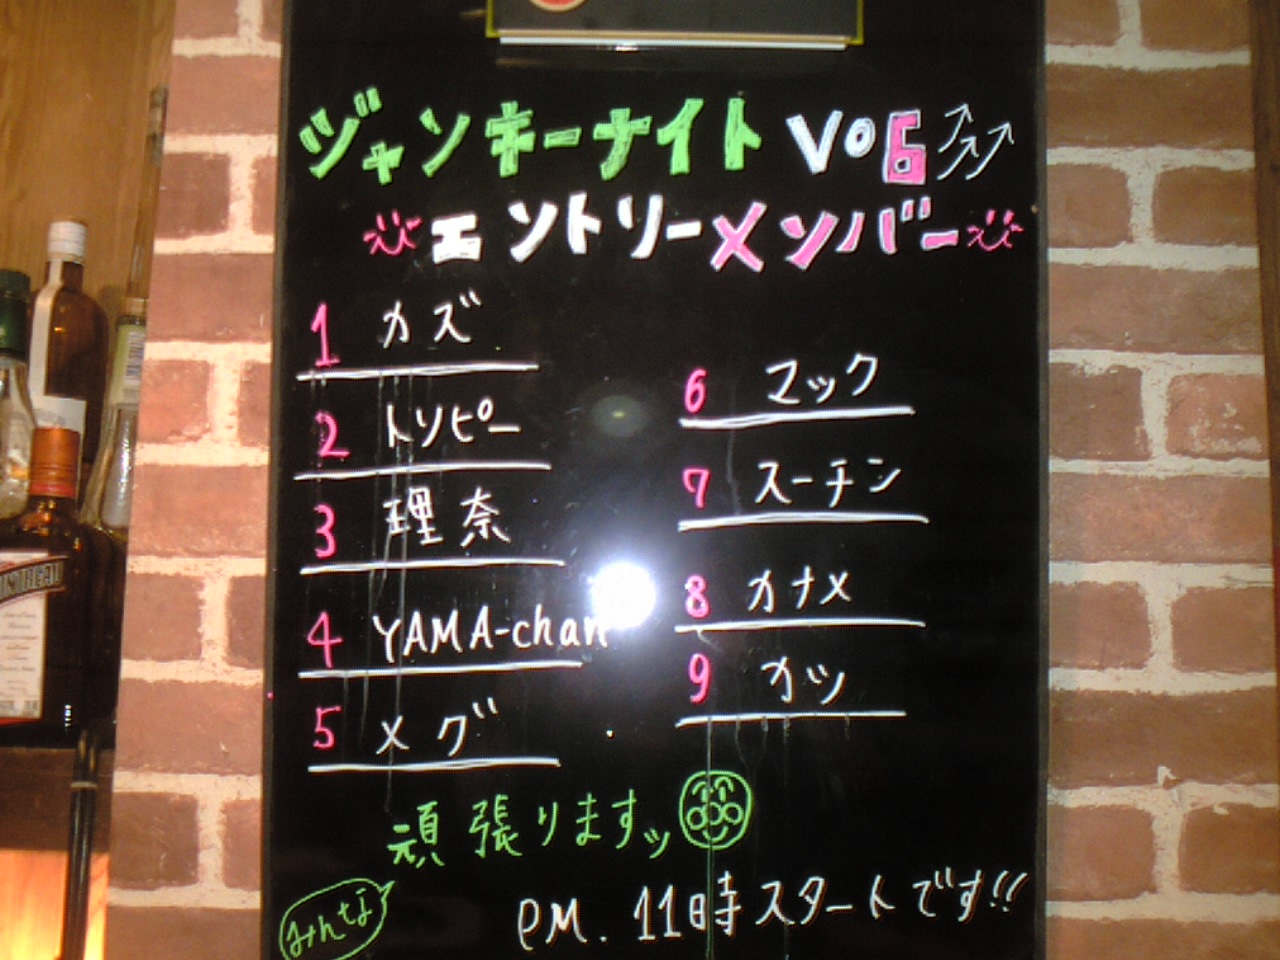 ジャンキーナイト Vo6
エントリーメンバー
1 カズ
2 トソピー
3 理奈
4 YAMA-chan
5 メグ
6 マック
7 スーチン
8 カナメ
9 カツ
頑張りますッ
みんな
PM. 11時スタートです!!